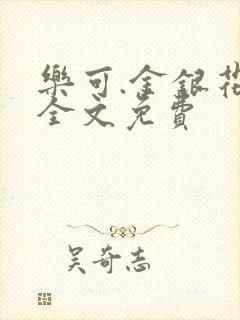 樂可.金銀花
全文免費
吴奇志